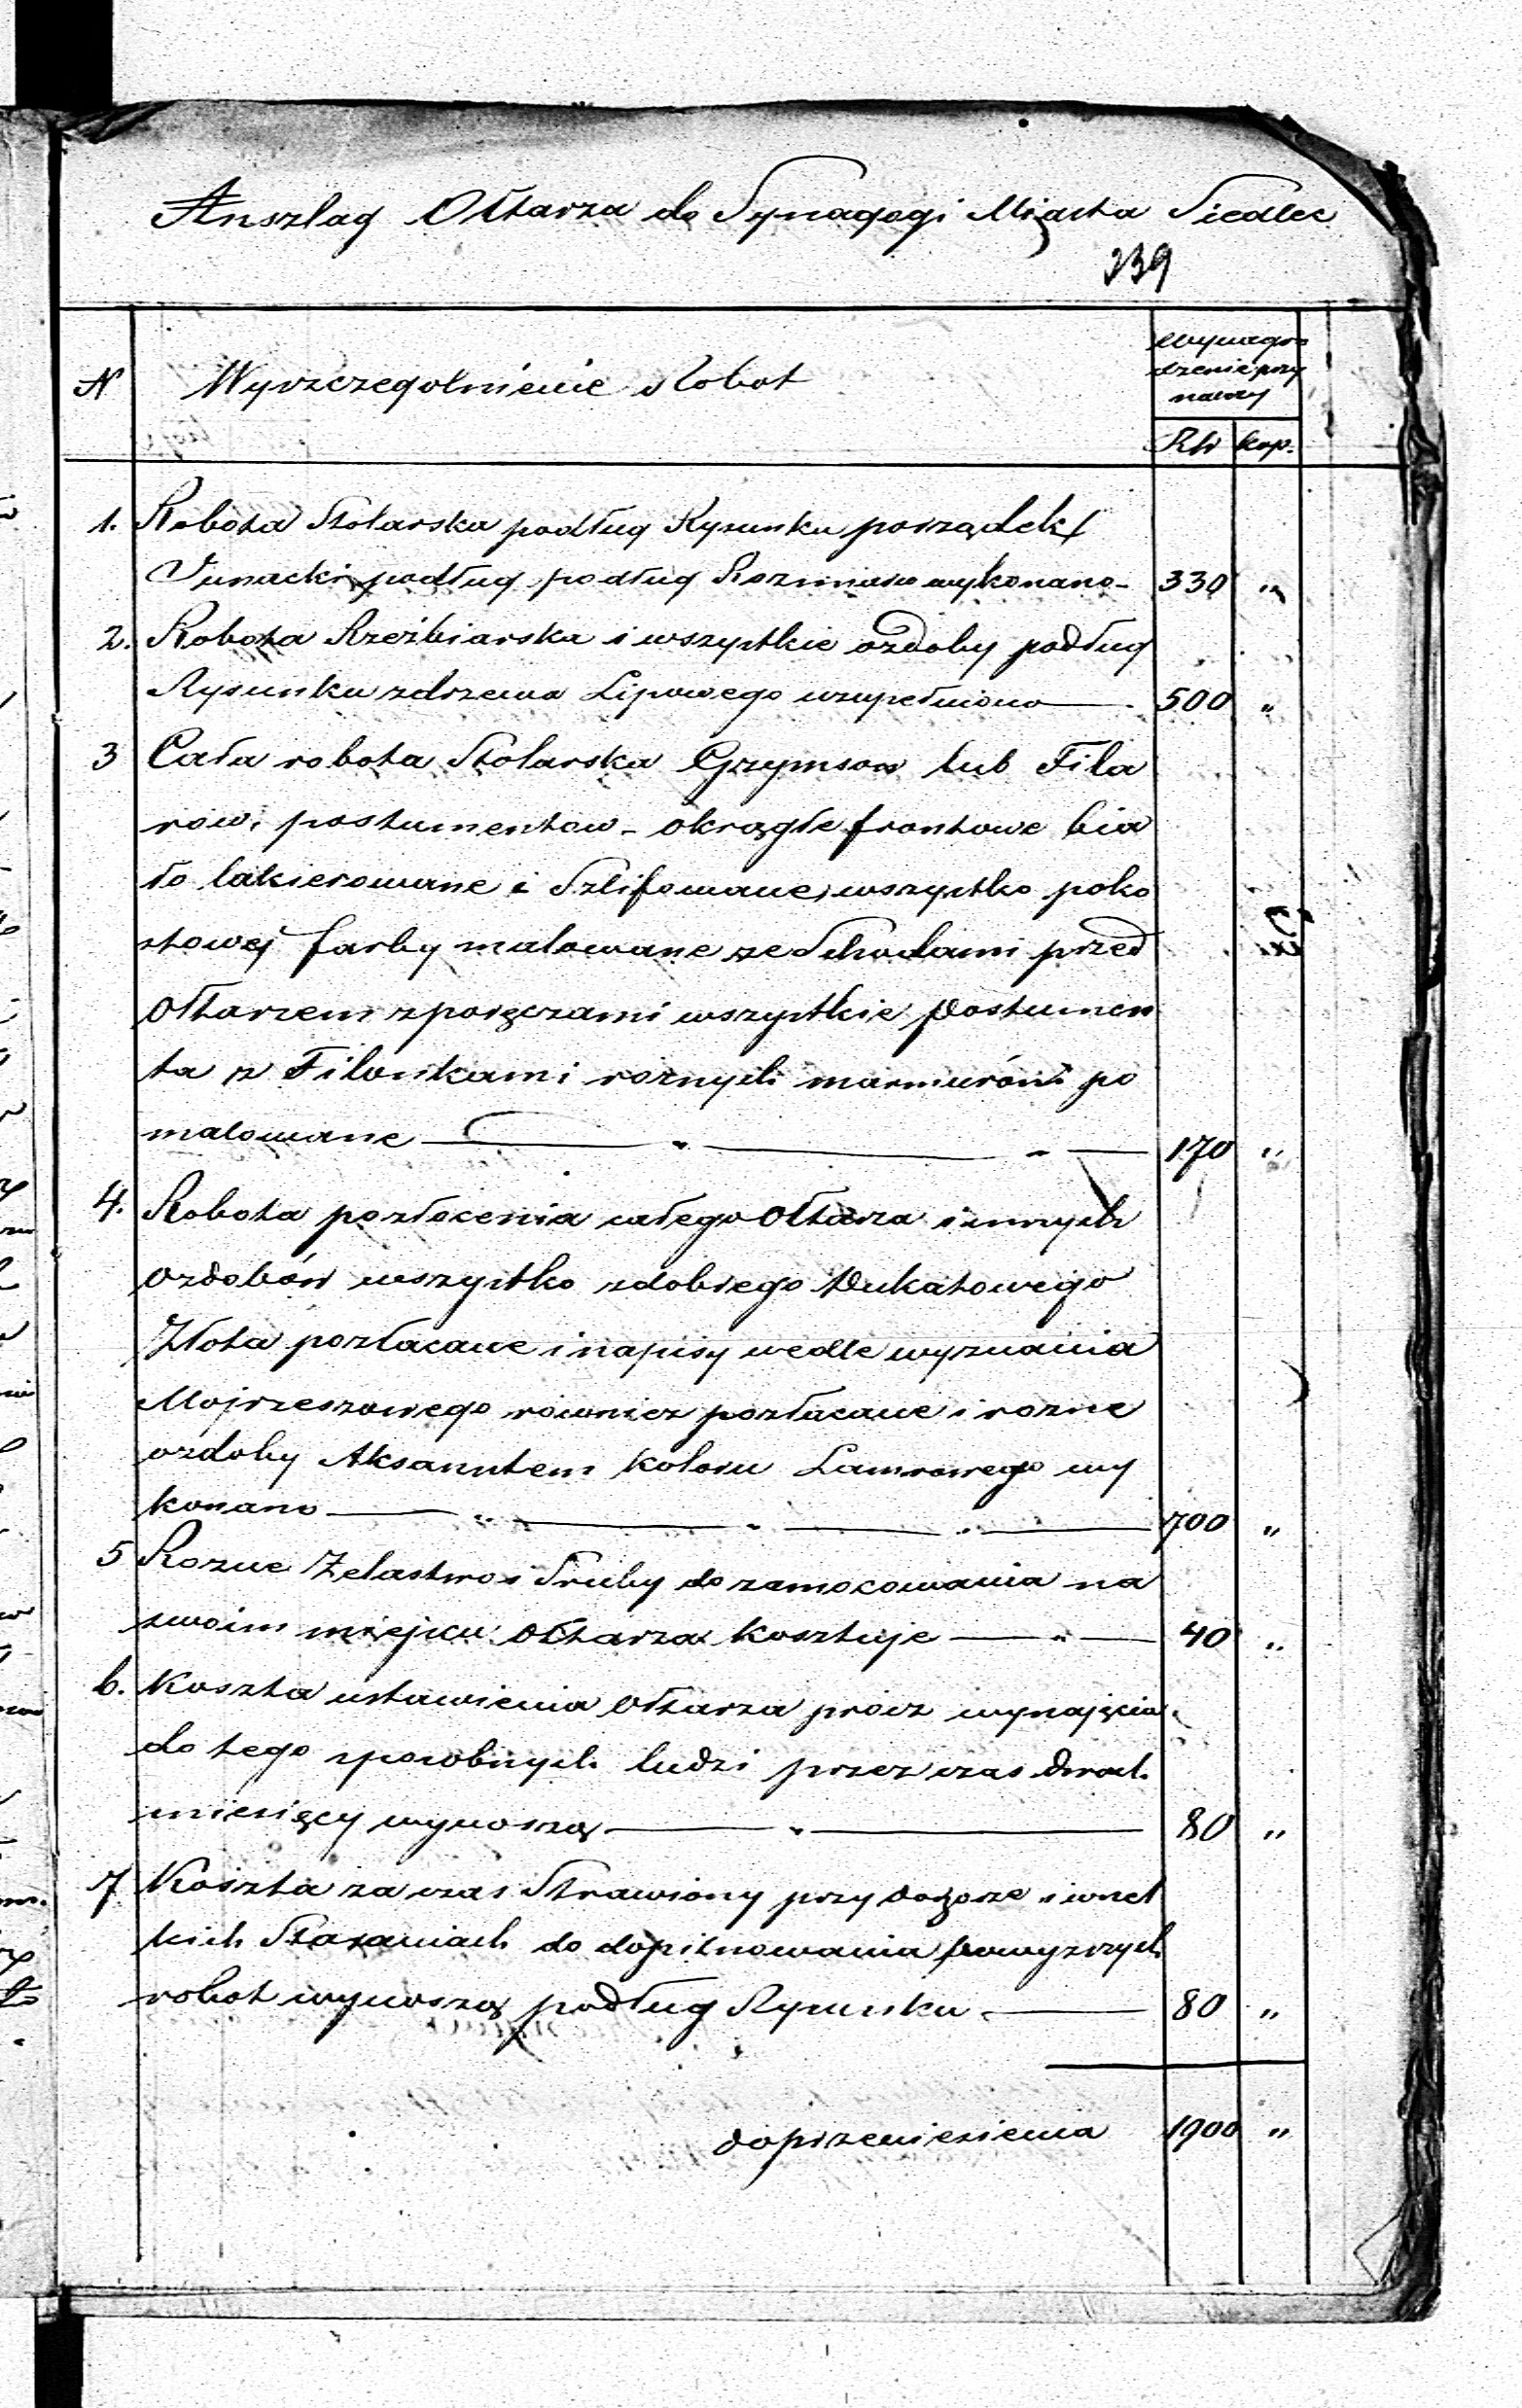 Anszlag Ołtarza do Synagogi Miasta Siedlec
239
N Wyszczegolnienie Robot
Wynagro
dzenie przy
należy
Rbś kop.
1. Robota Stolarska podług Rysunku porządek
podług podług Rozmiaru wykonano - 330 "
2. Robota Rzeźbiarska i wszystkie ozdoby podług
Rysunku zdrzewa Lipowego uzupełniono — 500 "
3 Cała robota Stolarska Gzymsow lub Fila
row, postumentow - okrągłe frontowe bia
ło lakierowane i Szlifowane, wszystko poko
stowej farby malowane ze Schodami przed
Ołtarzem z poręczami wszystkie Postumen
ta z Filonkami roznych marmurów po
malowane — " — " — 170 "
4. Robota pozłocenia całego Ołtarza i innych
Ozdobów wszystko zdobrego Dukatowego
Złota pozłacane i napisy wedle wyznania
Mojrzeszowego rownież pozłacane i rozne
ozdoby Aksamitem koloru wy
konano — " — " — " — 700 "
5 Rozne Żelastwo i Sruby do zamocowania na
swoim miejscu Ołtarza kosztuje — " — 40 "
6. Koszta ustawienia Ołtarza prócz wynajęcia
do tego sposobnych ludzi przez czas dwoch
miesięcy wynoszą — " — 80 "
7 Koszta za czas Strawiony przy dozorze i wszel
kich Staraniach do dopilnowania powyzszych
robot wynoszą podług Rysunku — 80 "
do przeniesienia 1900 "